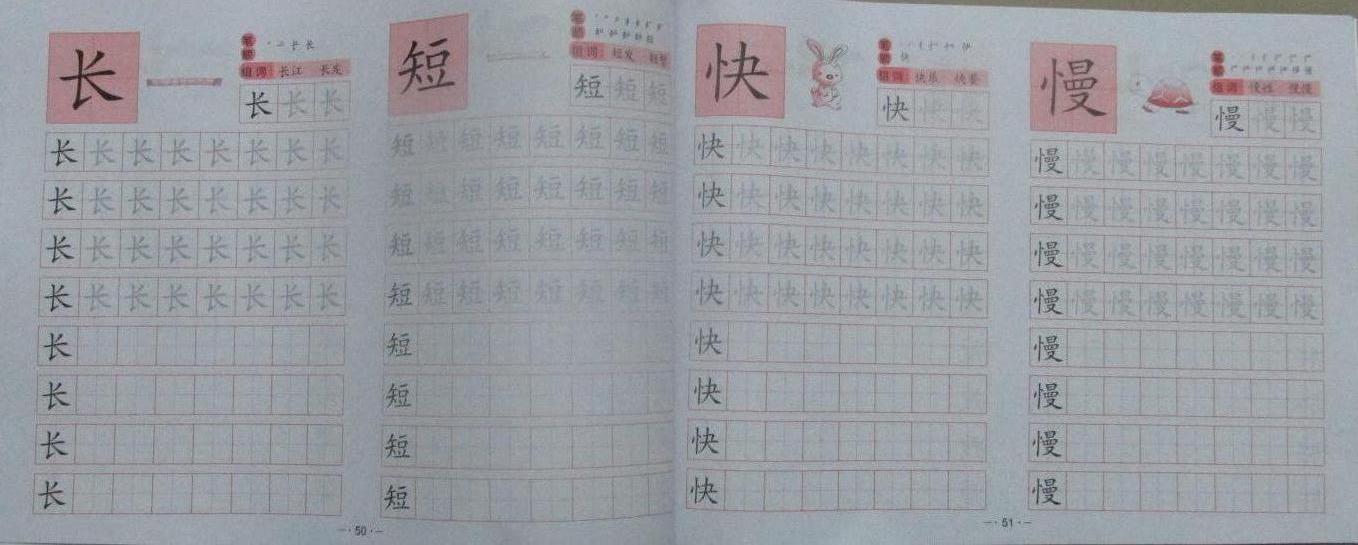 长
笔顺
组词 长江 长发
长 长 长
长 长 长 长 长 长 长 长
长 长 长 长 长 长 长 长
长 长 长 长 长 长 长 长
长 长 长 长 长 长 长 长
长
长
长
长
- · 50 · -
短
笔顺
组词 短发
短 短 短
短 短 短 短 短 短 短 短
短 短 短 短 短 短 短 短
短 短 短 短 短 短 短 短
短 短 短 短 短 短 短 短
短
短
短
短
快
笔顺
组词 快乐 快餐
快 快 快
快 快 快 快 快 快 快 快
快 快 快 快 快 快 快 快
快 快 快 快 快 快 快 快
快 快 快 快 快 快 快 快
快
快
快
快
- · 51 · -
慢
笔顺
组词 慢性 慢慢
慢 慢 慢
慢 慢 慢 慢 慢 慢 慢 慢
慢 慢 慢 慢 慢 慢 慢 慢
慢 慢 慢 慢 慢 慢 慢 慢
慢 慢 慢 慢 慢 慢 慢 慢
慢
慢
慢
慢